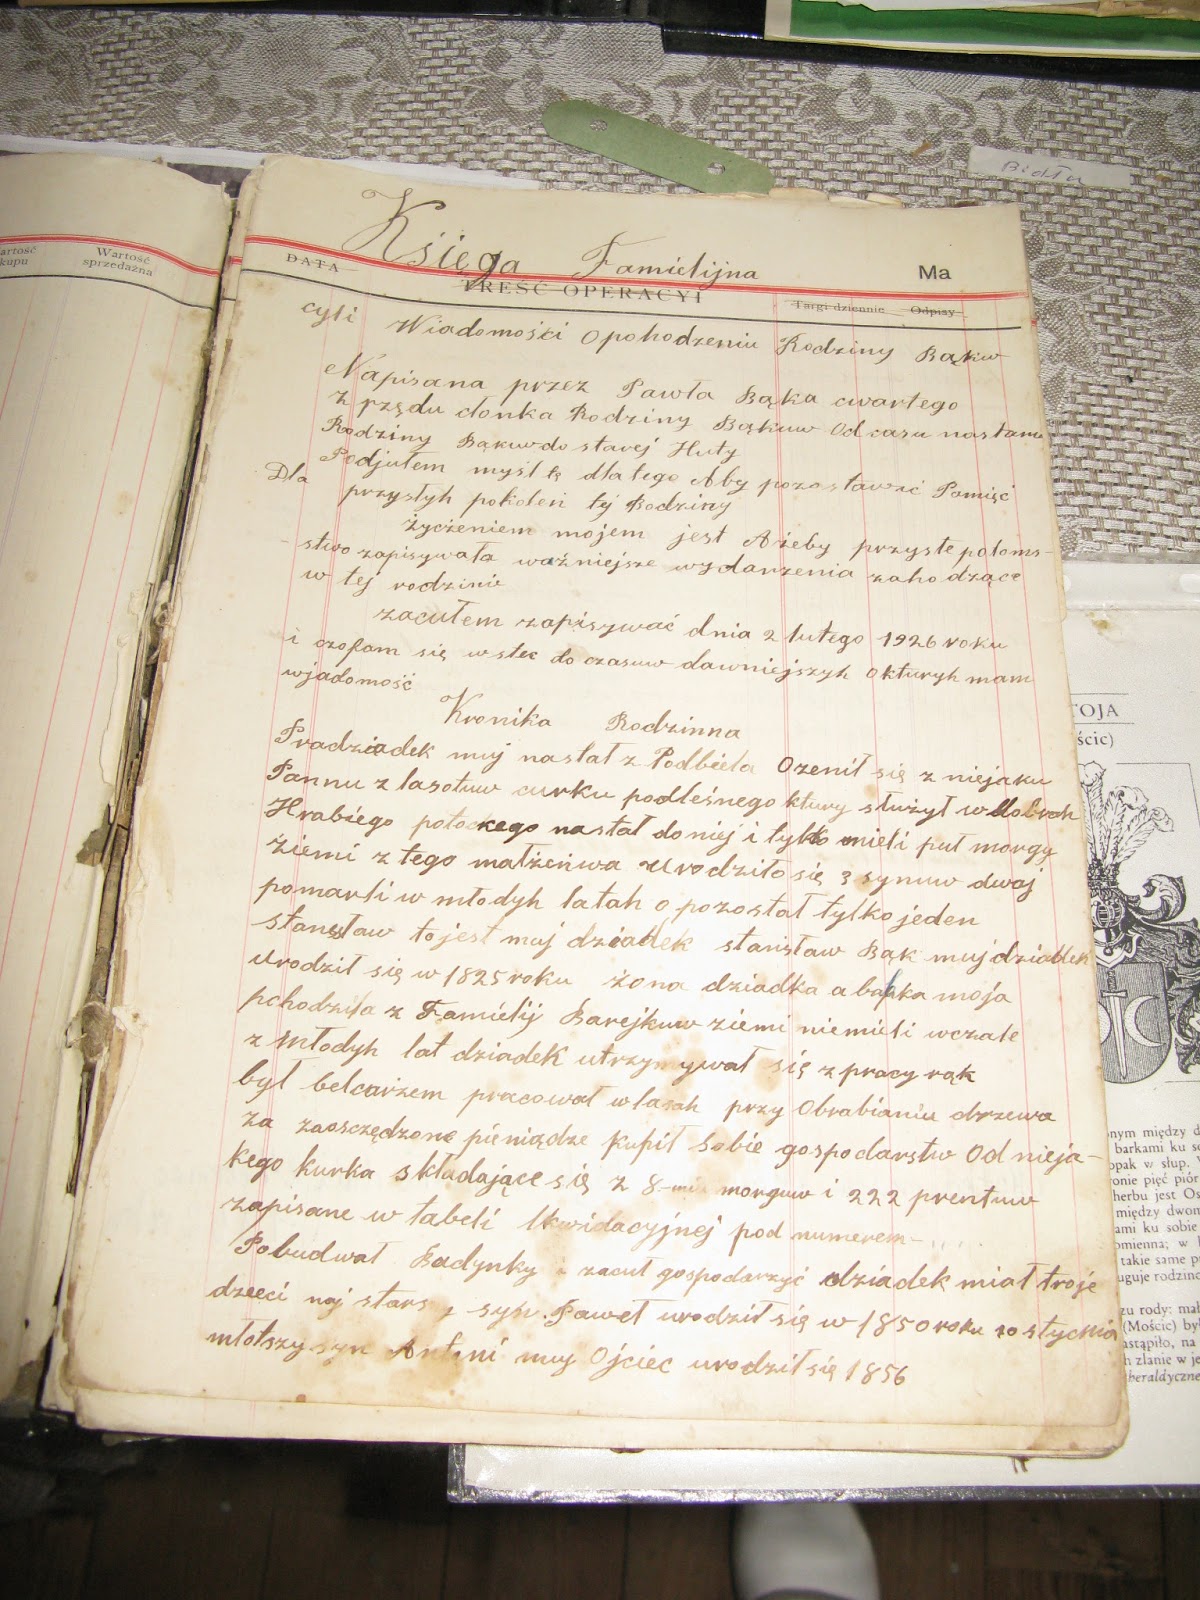 Bidłu
artość
kupu
Wartość
sprzedażna
Księga Familijna
Ma
DATA
TREŚĆ OPERACYI
Targi dziennie Odpisy
cyli Wiadomości opohodzeniu Rodziny Bąkuw
Napisana przez Pawła Bąka cwartego
z rzędu cłonka Rodziny Bąkuw Od casu nastania
Rodziny Bąkuw do starej Huty
Podjułem myśl tę dla tego Aby pozostawić Pamięć
Dla przysłyh pokoleń tyj Rodziny
życzeniem mojem jest Ażeby przysłe potoms-
stwo zapisywała ważniejsze wydarzenia zahodzące
w tej rodzinie
zacułem zapisywać dnia 2 lutego 1926 roku
i czofam się wstec do czasuw dawniejszyh okturyh mam
wjadomość
Kronika Rodzinna
Pradziadek muj nastał z Podbiela Ozenił się z niejaku
Pannu z lasotuw curku podleśnego ktury służył w dobrah
Hrabiego potockego nastał do niej i tylko mieli puł morgy
ziemi z tego małżeńwa urodziło się 3 synuw dwaj
pomarli w młodyh latah o pozostał tylko jeden
stanisław to jest muj dziadek stanisław Bąk muj dziadek
urodził się w 1825 roku żona dziadka a babka moja
pchodziła z Familij Barejkuw ziemi niemieli wczale
z młodyh lat dziadek utrzymywał się z pracy rąk
był belcarzem pracował w lasah przy Obrabianiu drzewa
za zaosczędzone pieniądze kupił sobie gospodarstw Od nieja-
kego kurka składające się z 8-miu morguw i 222 prentuw
zapisane w tabeli lkwidacyjnej pod numerem-....
Pobudwał Badynky i zacuł gospodarzyć dziadek miał troje
dzieci naj stars y syn Paweł urodził się w 1850 roku 10 stycnia
młotszy syn Antoni muj Ojciec urodził się 1856
TOJA
ścic)
onym między d
barkami ku
opak w słup.
ronie pięć piór
herbu jest
między dwom
ami ku sobie
omienna; w
takie same
uguje rodzin
zu rody: mał
(Mościc) był
astąpiło, na
h zlanie w je
heraldyczne